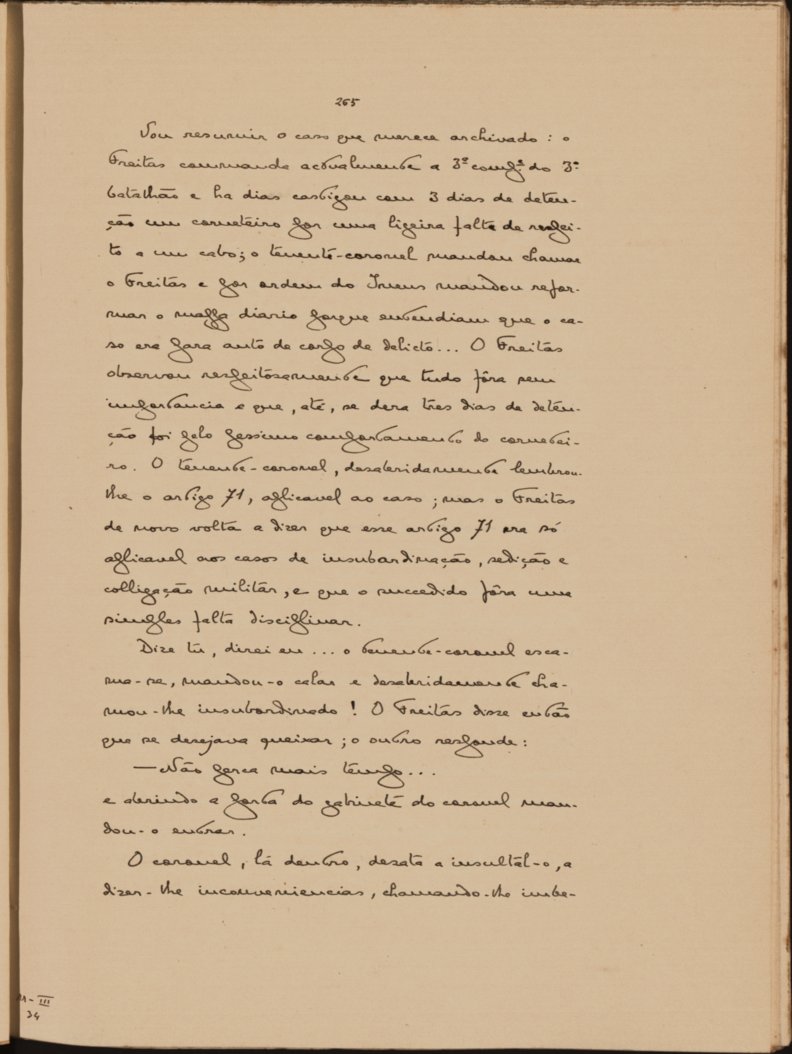 265
Vou resumir o caso que merece archivado : o
Freitas commanda actualmente a 3ª compª do 3º
batalhão e ha dias castigou com 3 dias de deten-
ção um corneteiro por uma ligeira falta de respei-
to a um cabo; o tenente-coronel mandou chamar
o Freitas e por ordem do Ineus mandou refor-
mar o mappa diario porque entendiam que o ca-
so era para auto de corpo de delicto... O Freitas
observou respeitosamente que tudo fôra sem
importancia e que, até, se dera três dias de deten-
ção foi pelo pessimo comportamento do cornetei-
ro. O tenente-coronel, desabridamente lembrou-
lhe o artigo 71, aplicavel ao caso ; mas o Freitas
de novo volta a dizer que esse artigo 71 era só
aplicavel aos casos de insubordinação, sedição e
colligação militar, e que o succedido fôra uma
simples falta disciplinar.
Dize tu, direi eu ... o tenente-coronel esca-
ma-se, mandou-o calar e desabridamente cha-
mou-lhe insubordinado ! O Freitas disse então
que se desejava queixar ; o outro responde :
— Não perca mais tempo...
e abrindo a porta do gabinete do coronel man-
dou-o entrar.
O coronel, lá dentro, desata a insultál-o, a
dizer-lhe inconveniencias, chamando-lhe imbe-
M-III
34